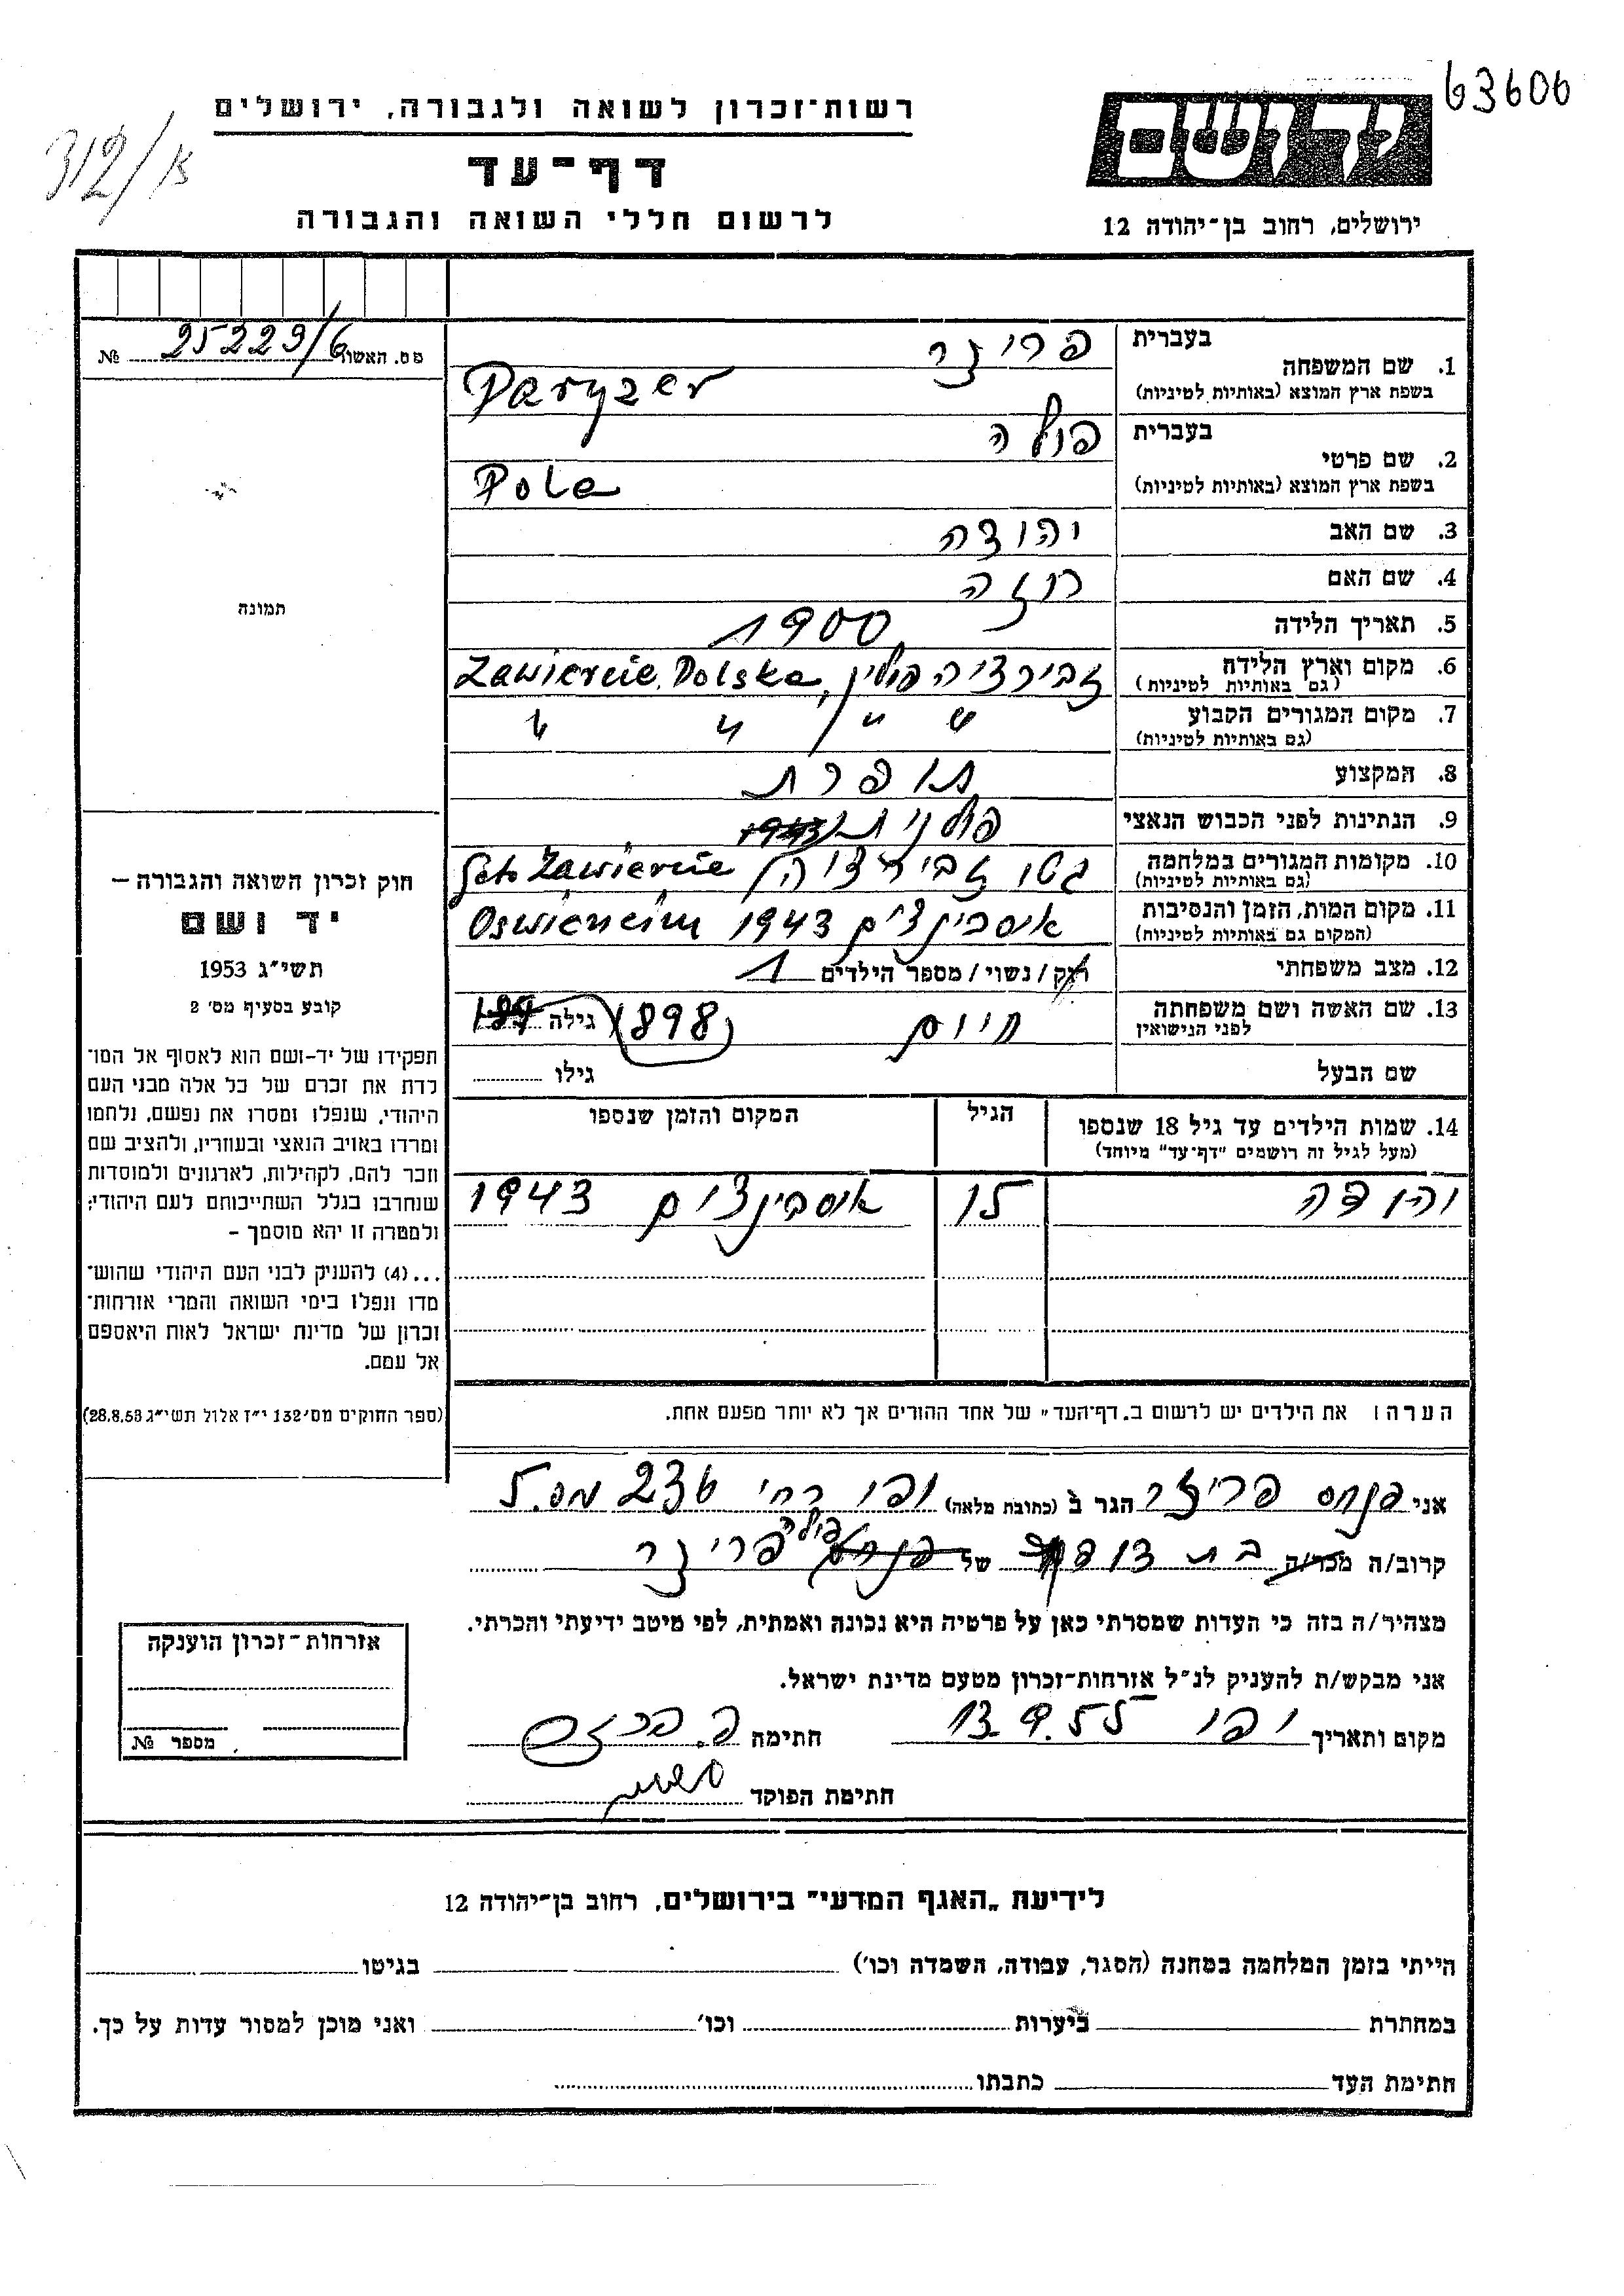 63606
רשות־זכרון לשואה ולגבורה, ירושלים
312/א
דף־עד
יד ושם
לרשום חללי השואה והגבורה
ירושלים, רחוב בן־יהודה 12
בעברית
פריזר
מס. האשה 25223/6 №
1. שם המשפחה
בשפת ארץ המוצא (באותיות לטיניות)
Paryzer
בעברית
פולה
2. שם פרטי
בשפת ארץ המוצא (באותיות לטיניות)
Pola
3. שם האב יהודה
4. שם האם רוזה
תמונה
5. תאריך הלידה 1900
6. מקום וארץ הלידה
(גם באותיות לטיניות)
זבירציה פולין, Zawiercie, Polska
7. מקום המגורים הקבוע
(גם באותיות לטיניות)
" " / " "
8. המקצוע תופרת
9. הנתינות לפני הכבוש הנאצי פולנית
10. מקומות המגורים במלחמה
(גם באותיות לטיניות)
גטו זבירציה / Geto Zawiercie
11. מקום המות, הזמן והנסיבות
(המקום גם באותיות לטיניות)
אוסבינצים 1943 Oswiencim
12. מצב משפחתי רוק / נשוי / מספר הילדים 1
13. שם האשה ושם משפחתה
לפני הנישואין
חיים גילה 1898
שם הבעל גילו
חוק זכרון השואה והגבורה –
יד ושם
תשי״ג 1953
קובע בסעיף מס׳ 2
תפקידו של יד-ושם הוא לאסוף אל המו־
לדת את זכרם של כל אלה מבני העם
היהודי, שנפלו ומסרו את נפשם, נלחמו
ומרדו באויב הנאצי ובעוזריו, ולהציב שם
וזכר להם, לקהילות, לארגונים ולמוסדות
שנחרבו בגלל השתייכותם לעם היהודי;
ולמטרה זו יהא מוסמך –
...(4) להעניק לבני העם היהודי שהוש־
מדו ונפלו בימי השואה והמרי אזרחות־
זכרון של מדינת ישראל לאות היאספם
אל עמם.
(ספר החוקים מס׳ 132 י״ז אלול תשי״ג 28.8.53)
14. שמות הילדים עד גיל 18 שנספו
(מעל לגיל זה רושמים "דף־עד" מיוחד)
הגיל
המקום והזמן שנספו
יהודה 15 אוסבינצים 1943
הערה: את הילדים יש לרשום ב„דף־העד״ של אחד ההורים אך לא יותר מפעם אחת.
אני פנחס פריזר הגר ב (כתובת מלאה) יפו רח׳ 236 מס. 5
קרוב/ה מכר/ה בת דוד של פולה פריזר
מצהיר/ה בזה כי העדות שמסרתי כאן על פרטיה היא נכונה ואמתית, לפי מיטב ידיעתי והכרתי.
אני מבקש/ת להעניק לנ״ל אזרחות־זכרון מטעם מדינת ישראל.
מקום ותאריך יפו 13.9.55 חתימה
חתימת הפוקד
אזרחות־זכרון הוענקה
מספר №
לידיעת „האגף המדעי״ בירושלים, רחוב בן־יהודה 12
הייתי בזמן המלחמה במחנה (הסגר, עבודה, השמדה וכו׳) בגיטו
במחתרת ביערות וכו׳ ואני מוכן למסור עדות על כך.
חתימת העד כתבתו